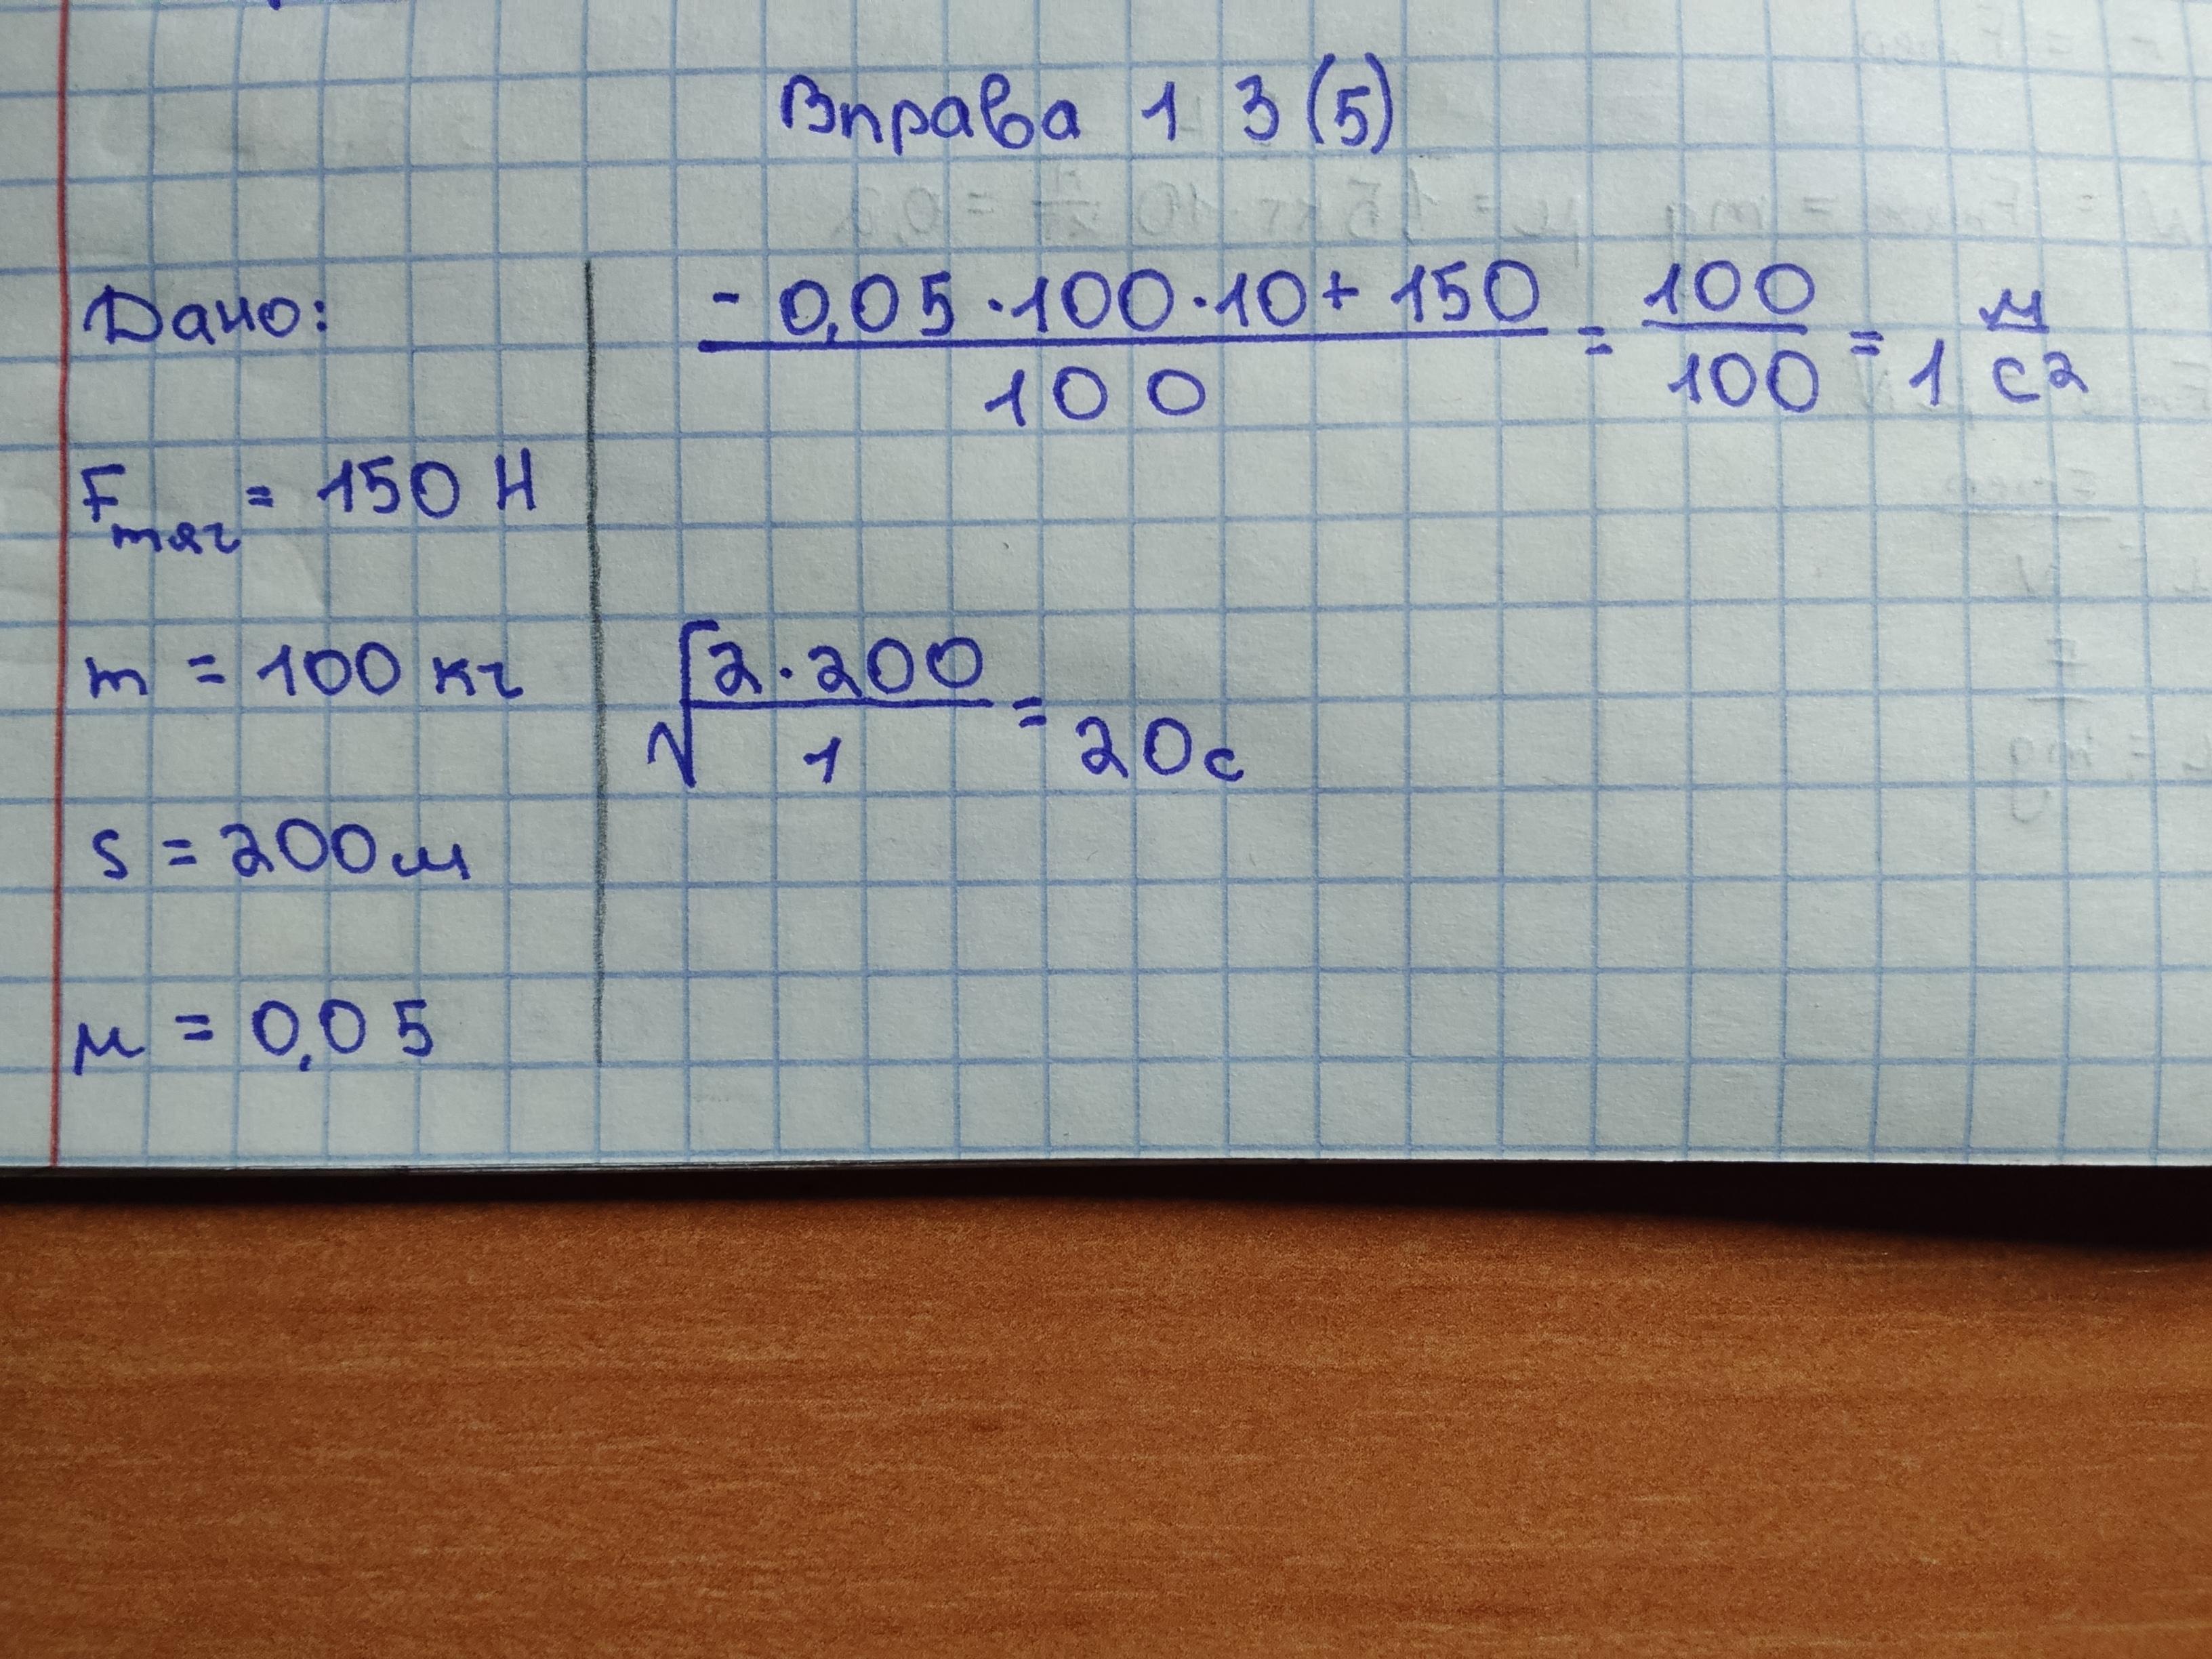 Вправа 1 3 (5)
Дано:
Fтяг = 150 Н
m = 100 кг
s = 200 м
μ = 0,05
(- 0,05 · 100 · 10 + 150) / 100 = 100 / 100 = 1 м/с2
√(2 · 200 / 1) = 20 с